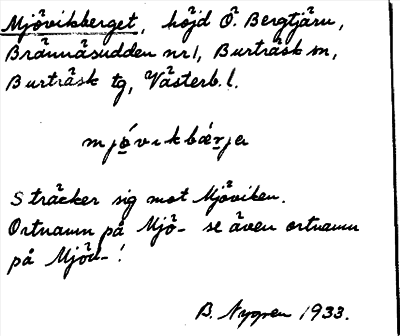 Mjövikberget, höjd Ö. Bergtjärn,
Brännäsudden nr 1, Burträsk sn,
Burträsk tg, Västerb. l.
mjóvıkbǽrjə
Sträcker sig mot Mjöviken.
Ortnamn på Mjö- se även ortnamn
på Mjöd-!
B. Nygren 1933.